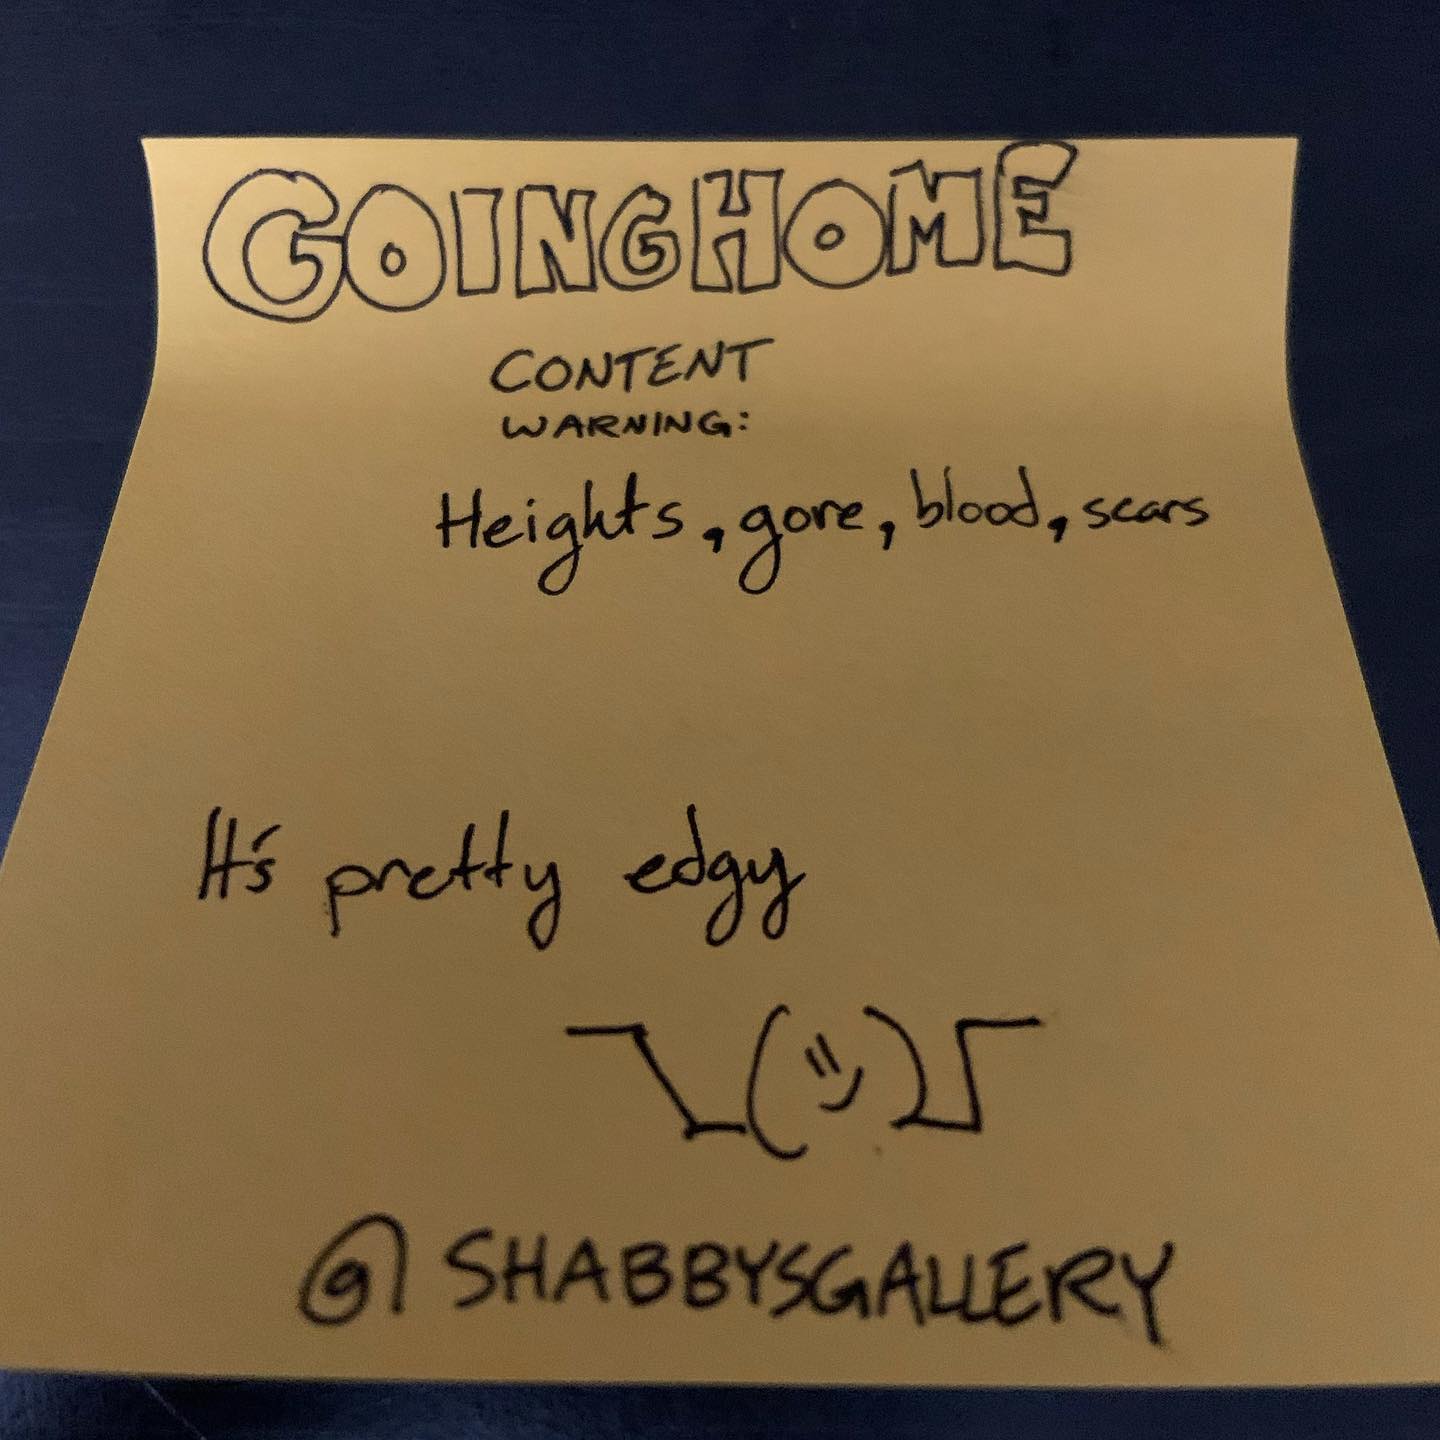 GOING HOME
CONTENT
WARNING:
Heights, gore, blood, scars
It's pretty edgy
¯\_(ツ)_/¯
@SHABBYSGALLERY